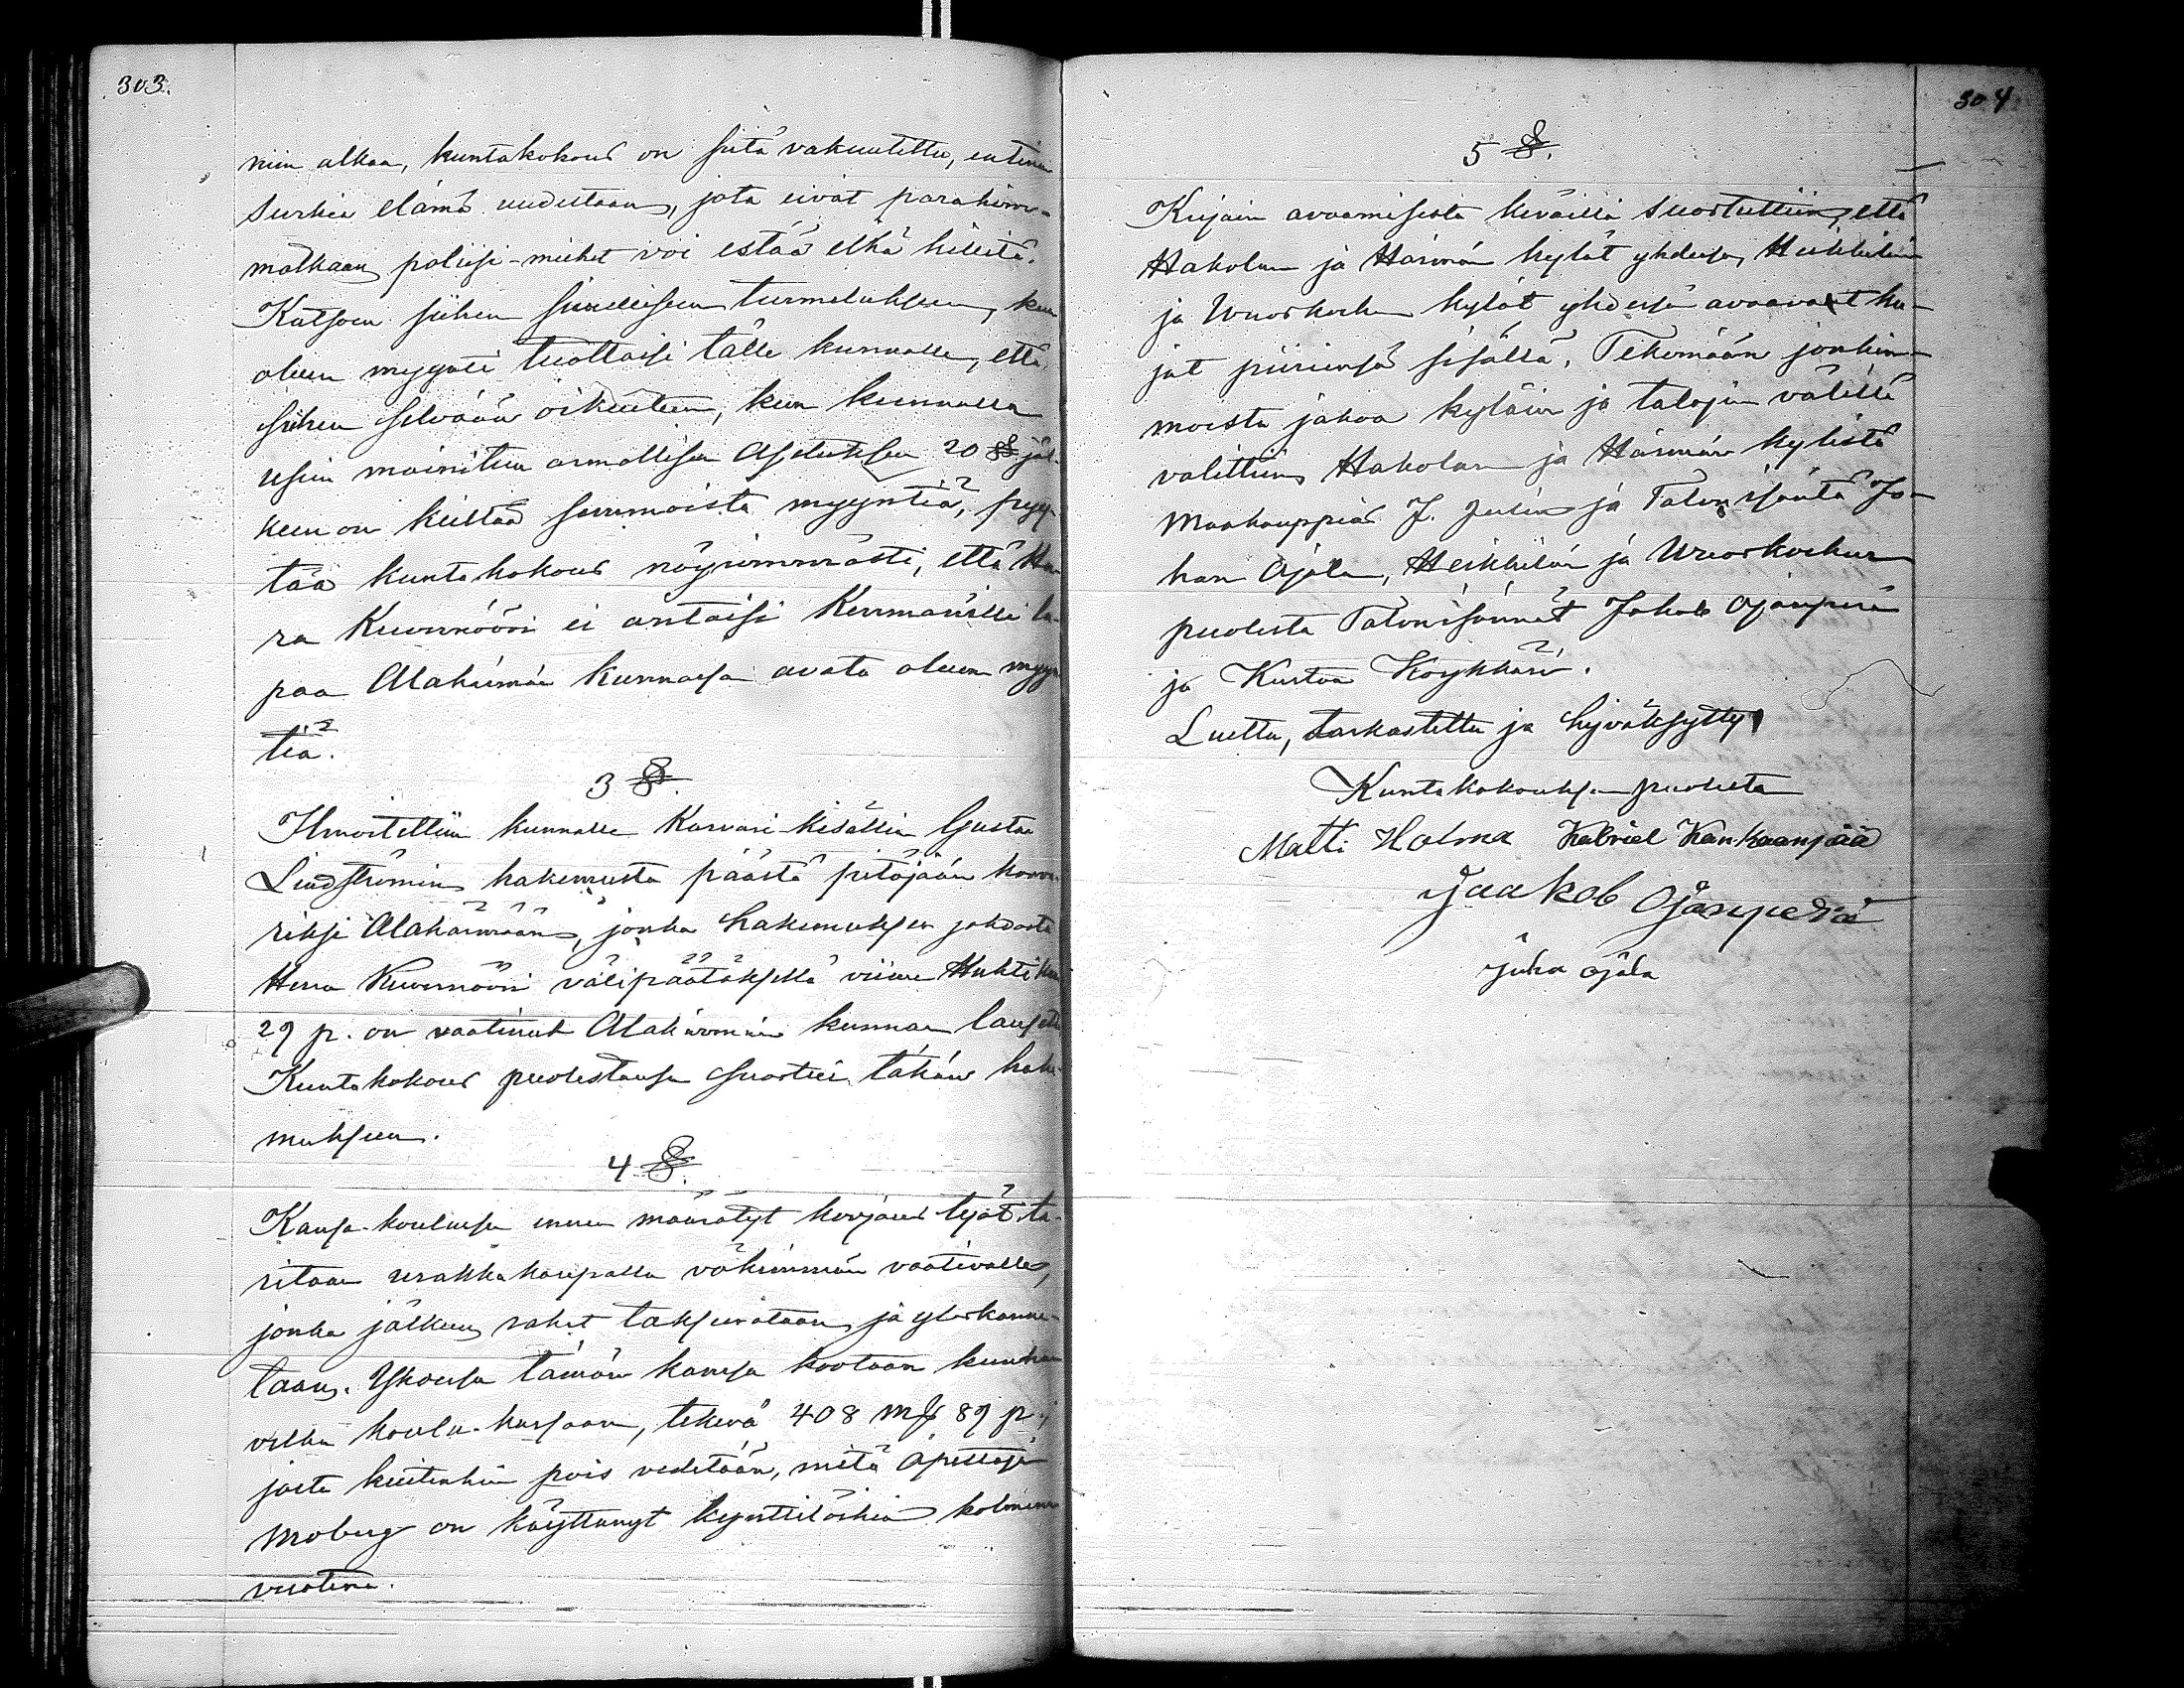 303.
niin alkaa, kuntakokous on siitä vakuutettu, entinen
surkia elämä uudestaan, jota eivät parahim-
matkaan poliisi-miehet voi estää eikä hillitä.
Katsoen siihen siveelliseen turmelukseen, kun
oluen myynti tuottaisi tälle kunnalle, että
siihen selvään oikeuteen, kun kunnalla
usein mainitun armollisen Asetuksen 20 § jäl-
keen on kieltää semmoista myyntiä, pyy-
tää kuntakokous nöyrimmästi, että Her-
ra Kuvernööri ei antaisi lu-
paa Alahärmän kunnassa avata oluen myyn-
tiä.
3 §.
Ilmoitettiin kunnalle Karvari-kisällin Gustav
Lindströmin hakemusta päästä pitäjään karva-
riksi Alahärmään, jonka hakemuksen johdosta
Herra Kuvernööri välipäätöksellä viime Huhtikuun
29 p. on vaatinut Alahärmän kunnan lausetta
Kuntakokous puolestansa suostui tähän hake-
mukseen.
4 §.
Kansa-koulussa ennen määrätyt korjaus työt ta-
ritaan urakka kaupalla vähimmän vaativalle,
jonka jälkeen rahat takseerataan ja yloskanne-
taan. Ykonsa tämän kanssa kootaan
velka koulu-kassaan, tekevä 408 mk 89 p.
josta kuitenkin pois vedetään, mitä Opettaja
Moberg on käyttänyt kynttilöihin kolmena
vuotena.
304
5 §.
Kujain avaamisesta keväillä suostuttiin, että
Hakolan ja Härmän kylät yhdessä, Heikkilän
ja Wuoskosken kylät yhdessä avaavat ku-
jat piiriensä sisällä. Tekemään jonkin-
moista jakoa kyläin ja talojen välillä
valittiin Hakolan ja Härmän kylistä
Maakauppias J. Julin ja Talonisäntä Jo-
han Ojala, Heikkilän ja Wuoskosken
puolesta Talonisännät Jakob Ojanperä
ja Kustaa Köykkäri.
Luettu, tarkastettu ja hyväksytty
Kuntakokouksen puolesta
Matti Holma Kabriel Kankaanpää
Jaakob Ojanperä
Juha Ojala